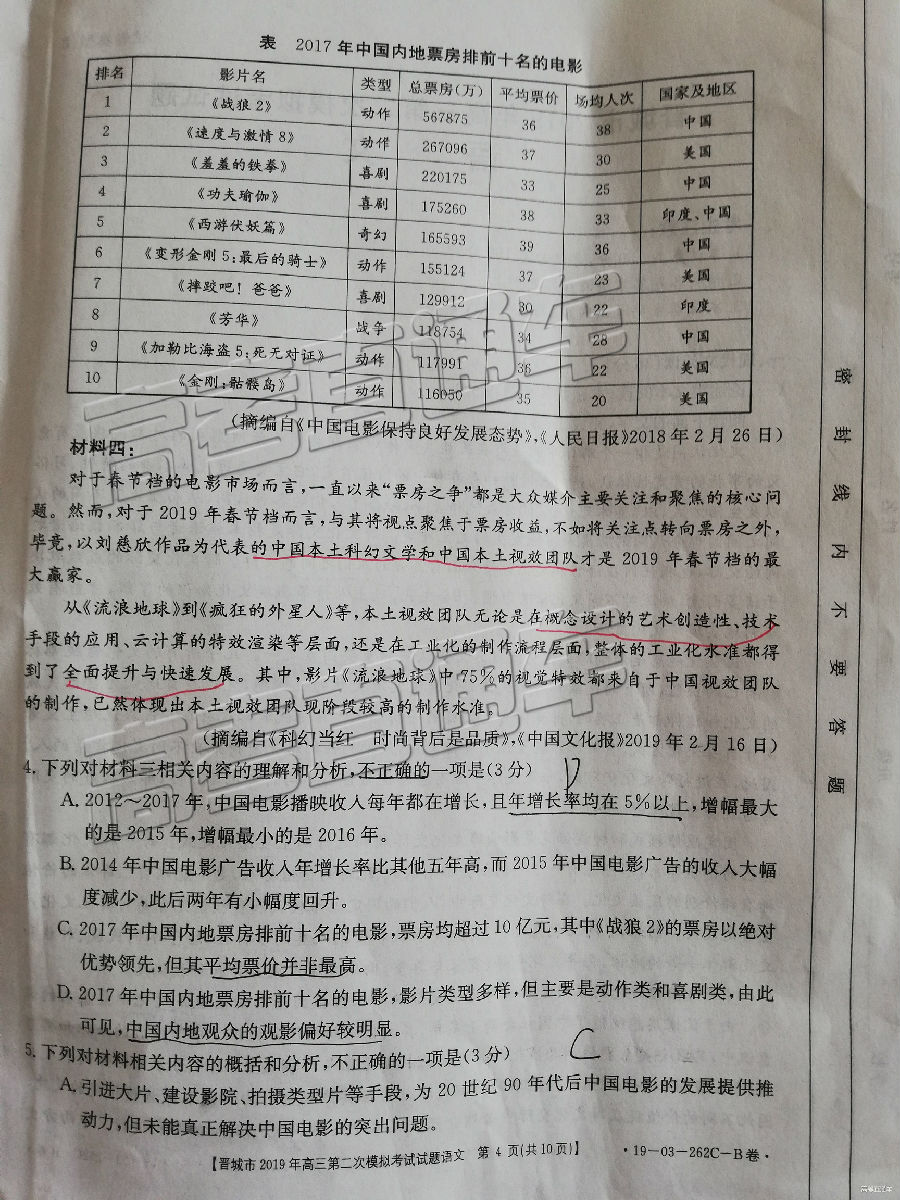 表 2017年中国内地票房排前十名的电影
排名 影片名 类型 总票房(万) 平均票价 场均人次 国家及地区
1 《战狼2》 动作 567875 36 38 中国
2 《速度与激情8》 动作 267096 37 30 美国
3 《羞羞的铁拳》 喜剧 220175 33 25 中国
4 《功夫瑜伽》 喜剧 175260 38 33 印度、中国
5 《西游伏妖篇》 奇幻 165593 39 36 中国
6 《变形金刚5:最后的骑士》 动作 155124 37 23 美国
7 《摔跤吧!爸爸》 喜剧 129912 30 22 印度
8 《芳华》 战争 118754 34 28 中国
9 《加勒比海盗5:死无对证》 动作 117991 36 22 美国
10 《金刚:骷髅岛》 动作 116050 35 20 美国
(摘编自《中国电影保持良好发展态势》,《人民日报》2018年2月26日)
材料四:
对于春节档的电影市场而言,一直以来“票房之争”都是大众媒介主要关注和聚焦的核心问
题。然而,对于2019年春节档而言,与其将视点聚焦于票房收益,不如将关注点转向票房之外,
毕竟,以刘慈欣作品为代表的中国本土科幻文学和中国本土视效团队才是2019年春节档的最
大赢家。
从《流浪地球》到《疯狂的外星人》等,本土视效团队无论是在概念设计的艺术创造性、技术
手段的应用、云计算的特效渲染等层面,还是在工业化的制作流程层面,整体的工业化水准都得
到了全面提升与快速发展。其中,影片《流浪地球》中75%的视觉特效都来自于中国视效团队
的制作,已然体现出本土视效团队现阶段较高的制作水准。
(摘编自《科幻当红 时尚背后是品质》,《中国文化报》2019年2月16日)
4.下列对材料三相关内容的理解和分析,不正确的一项是(3分) D
A.2012~2017年,中国电影播映收入每年都在增长,且年增长率均在5%以上,增幅最大
的是2015年,增幅最小的是2016年。
B.2014年中国电影广告收入年增长率比其他五年高,而2015年中国电影广告的收入大幅
度减少,此后两年有小幅度回升。
C.2017年中国内地票房排前十名的电影,票房均超过10亿元,其中《战狼2》的票房以绝对
优势领先,但其平均票价并非最高。
D.2017年中国内地票房排前十名的电影,影片类型多样,但主要是动作类和喜剧类,由此
可见,中国内地观众的观影偏好较明显。
5.下列对材料相关内容的概括和分析,不正确的一项是(3分) C
A.引进大片、建设影院、拍摄类型片等手段,为20世纪90年代后中国电影的发展提供推
动力,但未能真正解决中国电影的突出问题。
【晋城市2019年高三第二次模拟考试试题语文 第4页(共10页)】 ·19-03-262C-B卷·
密封线内不要答题
高考直通车
高考直通车